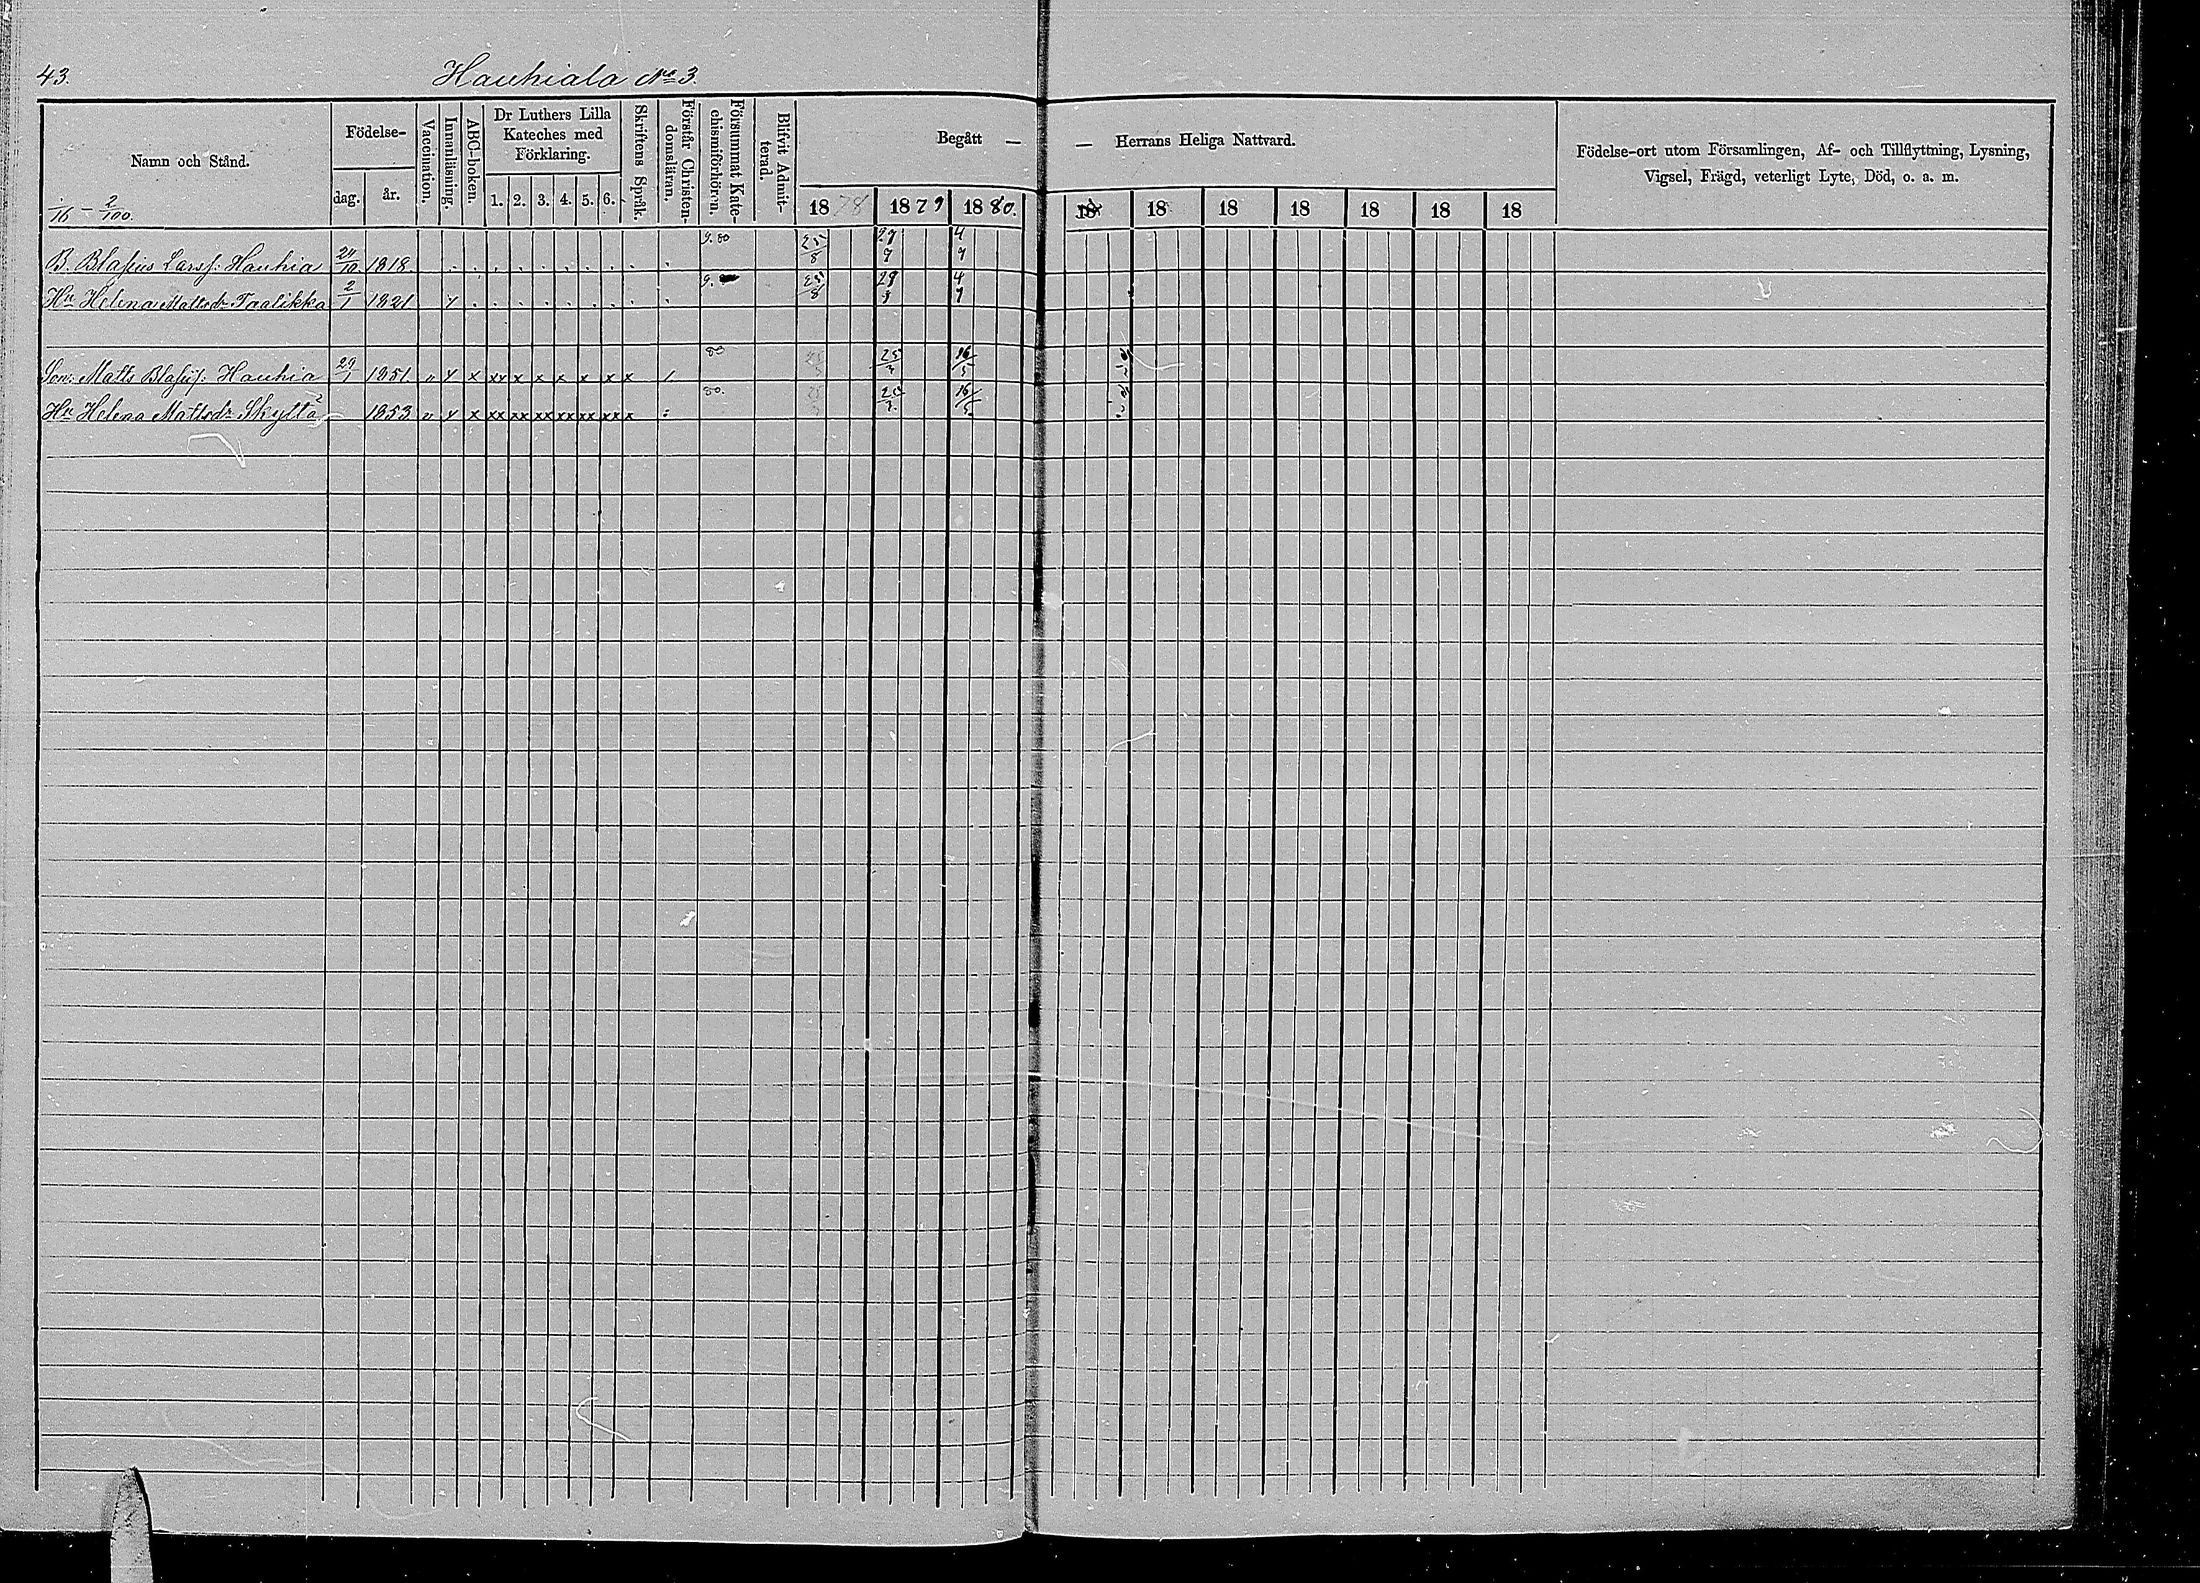 43. Hauhiala No 3.
Namn och Stånd. Födelse- dag. år. Vaccination. Innanläsning. ABC-boken. Dr Luthers Lilla Kateches med Förklaring. 1. 2. 3. 4. 5. 6. Skriftens Språk. Förstår Christen-domsläran. Försummat Kate-chismiförhören. Blifvit Admit-terad. Begått — — Herrans Heliga Nattvard. Födelse-ort utom Församlingen, Af- och Tillflyttning, Lysning, Vigsel, Frägd, veterligt Lyte, Död, o. a. m.
18 78 1879 1880. 18 18 18 18 18 18 18
B. Blasius Larss: Hauhia 1818. 9. 80 25/8 4
Hu Helena Mattsdr Taalikka 2/1 1821 y 9. 25/8 4
Son: Matts Blasiis: Hauhia 29/1 1851. " y x xx x x x x x x 80 25/3 16/5
Hu Helena Mattsdr Skyttä 1853 " y x xx xx xx xx xx xx x : 80. 25/3 16/5